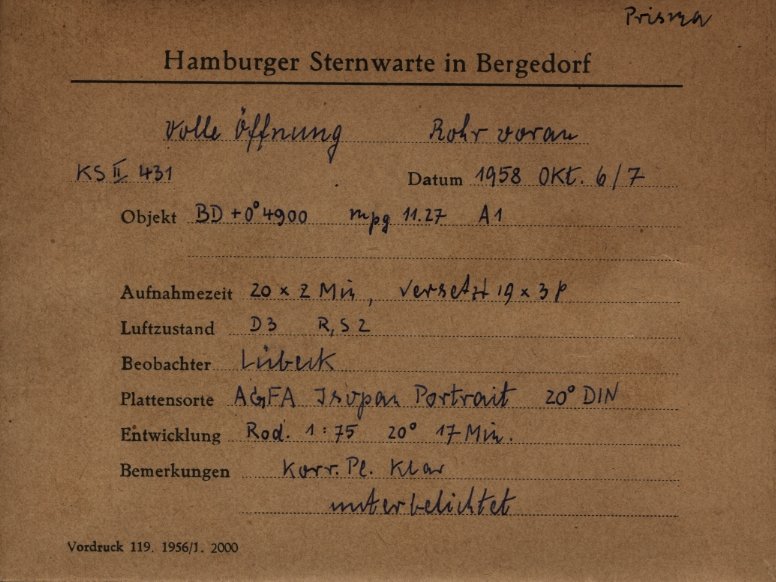 Prisma
Hamburger Sternwarte in Bergedorf
Volle Öffnung Rohr voran
KS II 431 Datum 1958 OKt. 6/7
Objekt BD +0° 4900 mpg 11.27 A1
Aufnahmezeit 20 x 2 Min, versetzt 19 x 3 P
Luftzustand D3 R, S 2
Beobachter Lübeck
Plattensorte AGFA Isopan Portrait 20° DIN
Entwicklung Rod. 1:75 20° 17 Min.
Bemerkungen Korr. Pl. Klar
unterbelichtet
Vordruck 119. 1956/1. 2000